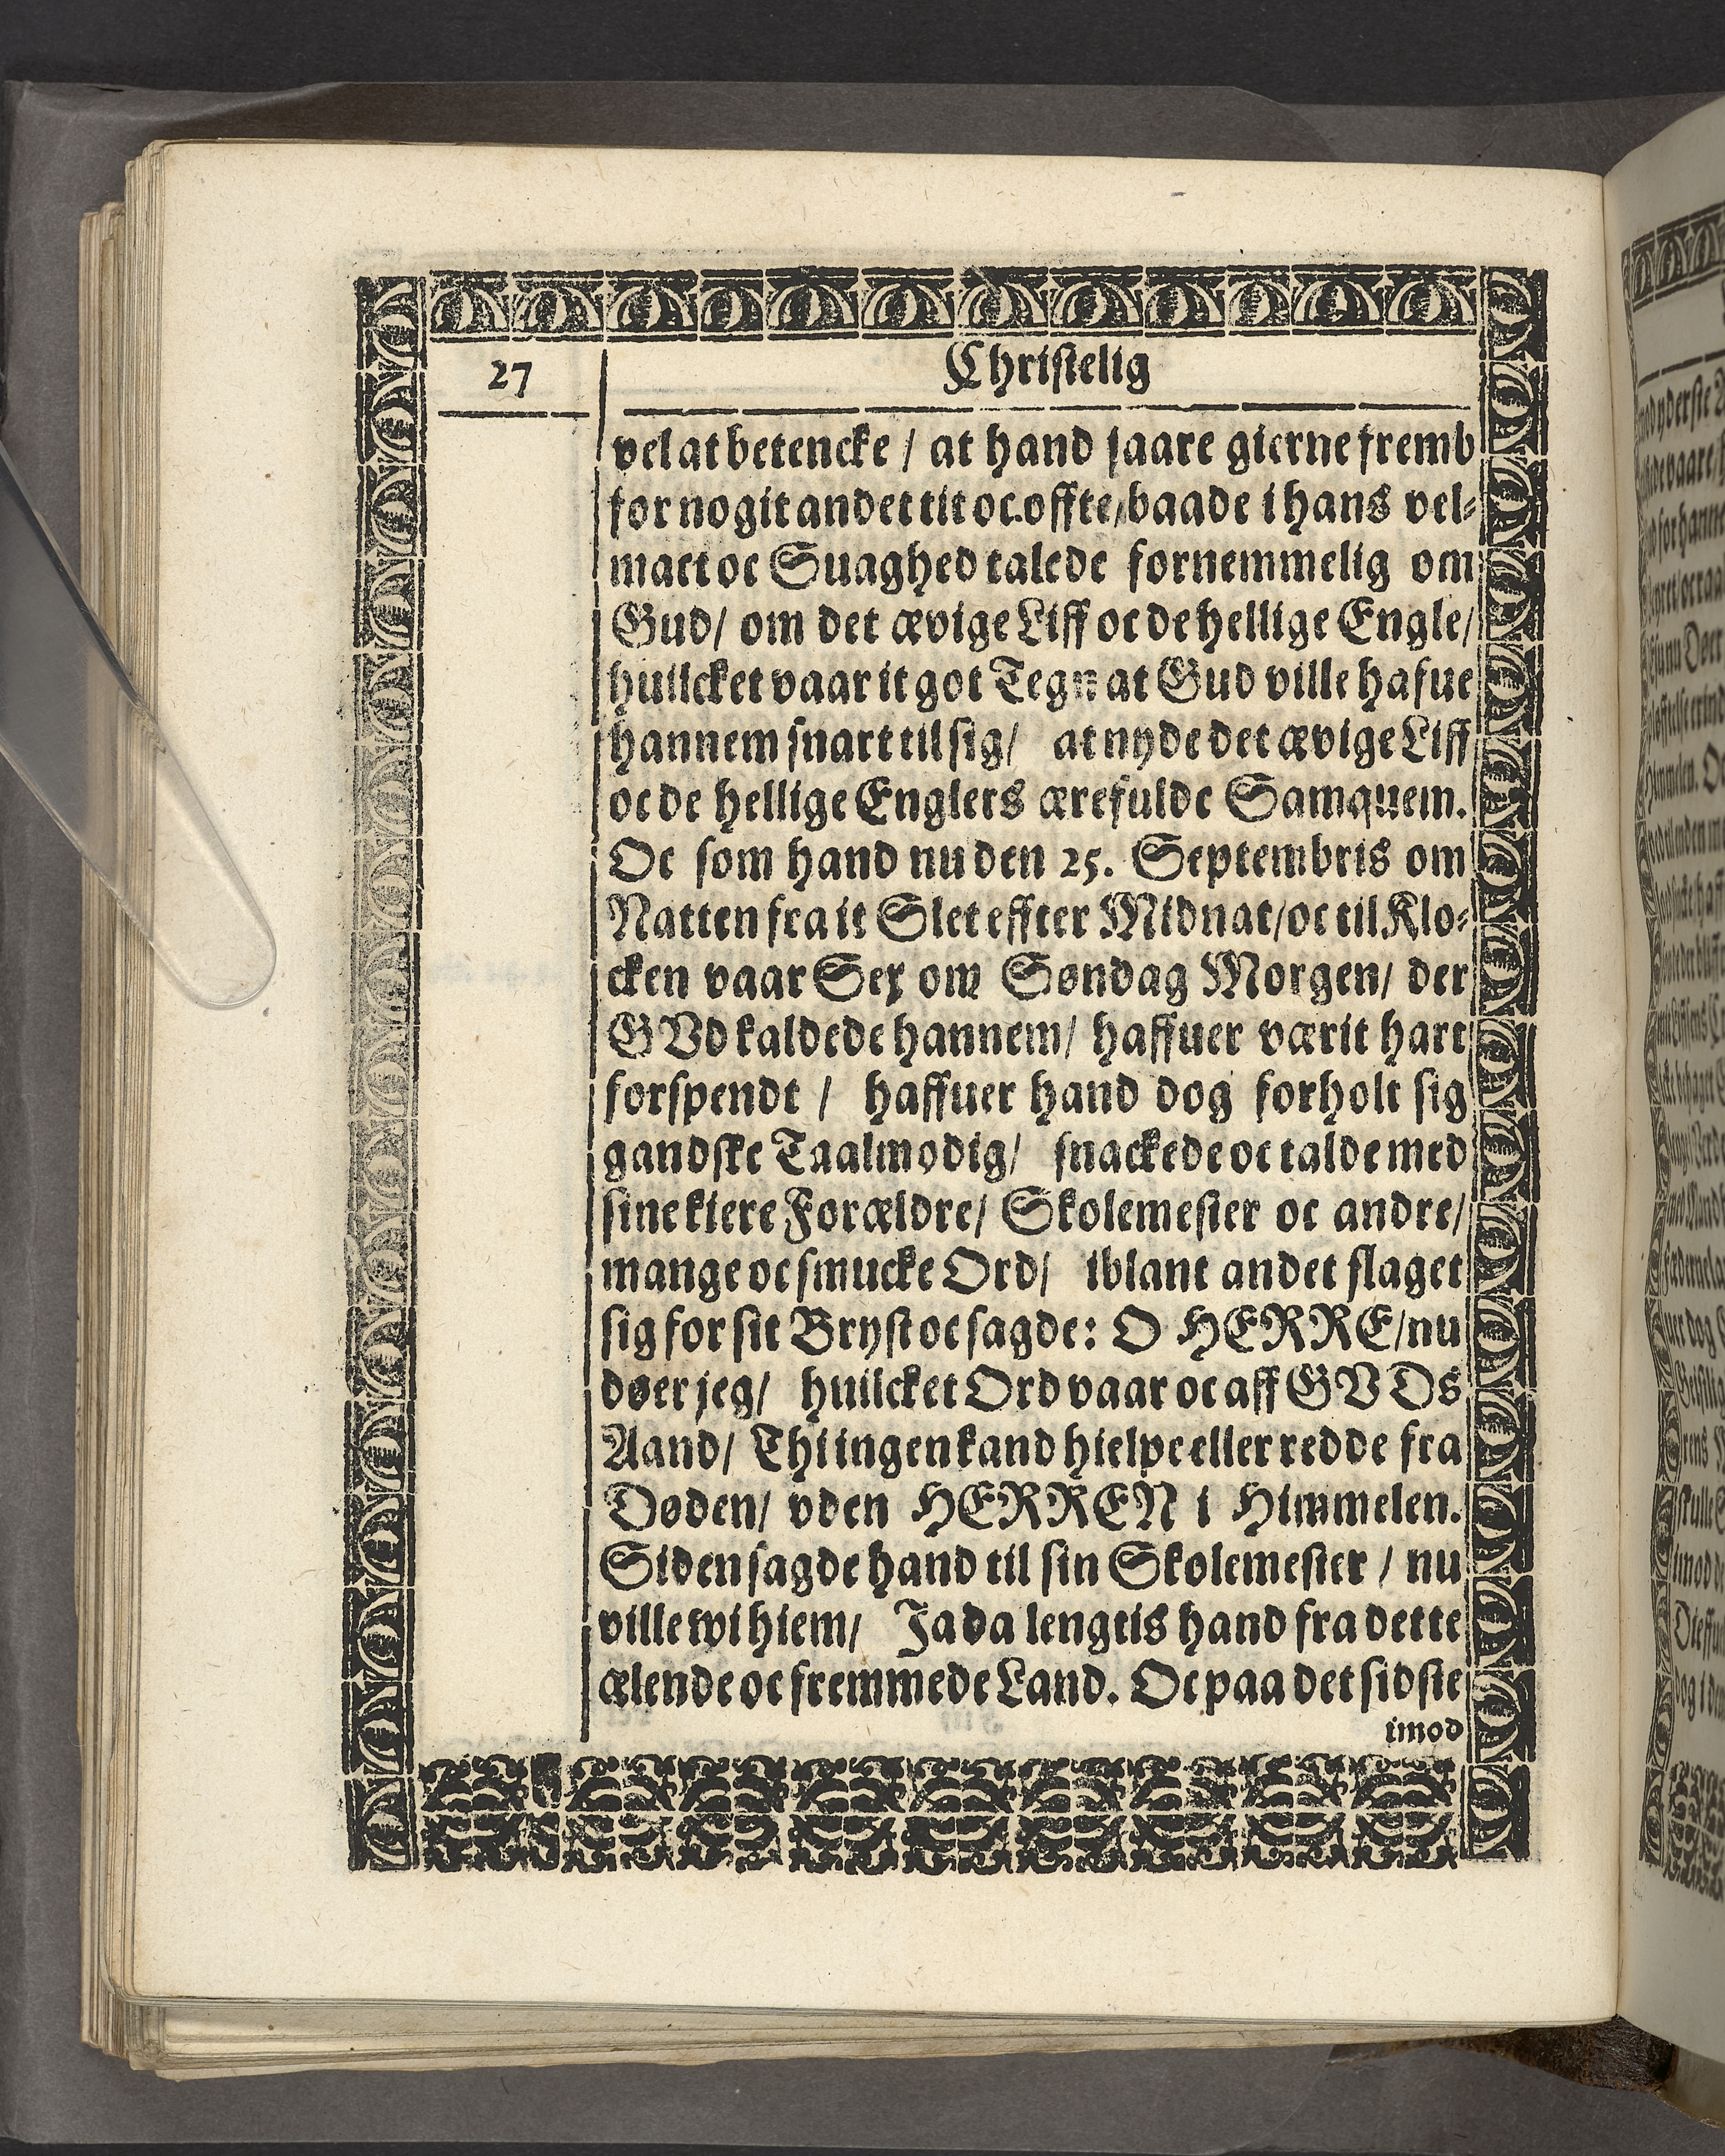 27
Christelig
vel at betencke / at hand saare gierne fremb
for nogit andet tit oc offte / baade i hans vel-
mact oc Suaghed talede fornemmelig om
Gud / om det ævige Liff oc de hellige Engle /
huilcket vaar it got Tegn at Gud ville hafue
hannem snart til sig / at nyde det ævige Liff
oc de hellige Englers ærefulde Samquem.
Oc som hand nu den 25. Septembris om
Natten fra it Slet effter Midnat / oc til Klo-
cken vaar Sex om Søndag Morgen / der
GVd kaldede hannem / haffuer værit hart
forspendt / haffuer hand dog forholt sig
gandske Taalmodig / snackede oc talde med
sine kiere Forældre / Skolemester oc andre /
mange oc smucke Ord / iblant andet slaget
sig for sit Bryst oc sagde: O HERRE / nu
døer jeg / huilcket Ord vaar oc aff GVDs
Aand / Thi ingen kand hielpe eller redde fra
Døden / vden HERREN i Himmelen.
Siden sagde hand til sin Skolemester / nu
ville wi hiem / Ja da lengtis hand fra dette
ælende oc fremmede Land. Oc paa det sidste
imod